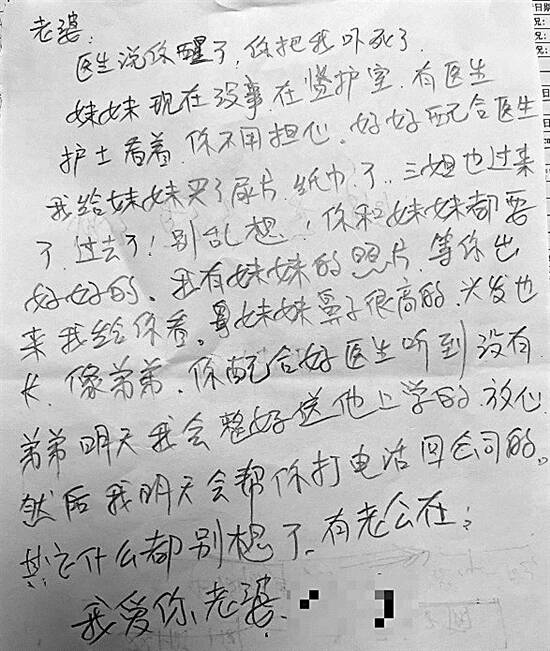 老婆:
医生说你醒了,你把我吓死了.
妹妹现在没事在监护室.有医生
护士看着.你不用担心.好好配合医生
我给妹妹买了尿片.纸巾了.三姐也过来
了.过去了!别乱想.!你和妹妹都要
好好的。我有妹妹的照片.等你出
来我给你看。妹妹鼻子很高的.头发也
长.像弟弟.你配合好医生听到没有
弟弟明天我会整好送他上学的.放心.
然后我明天会帮你打电话回公司的。
其它什么都别想了.有老公在;
我爱你、老婆.